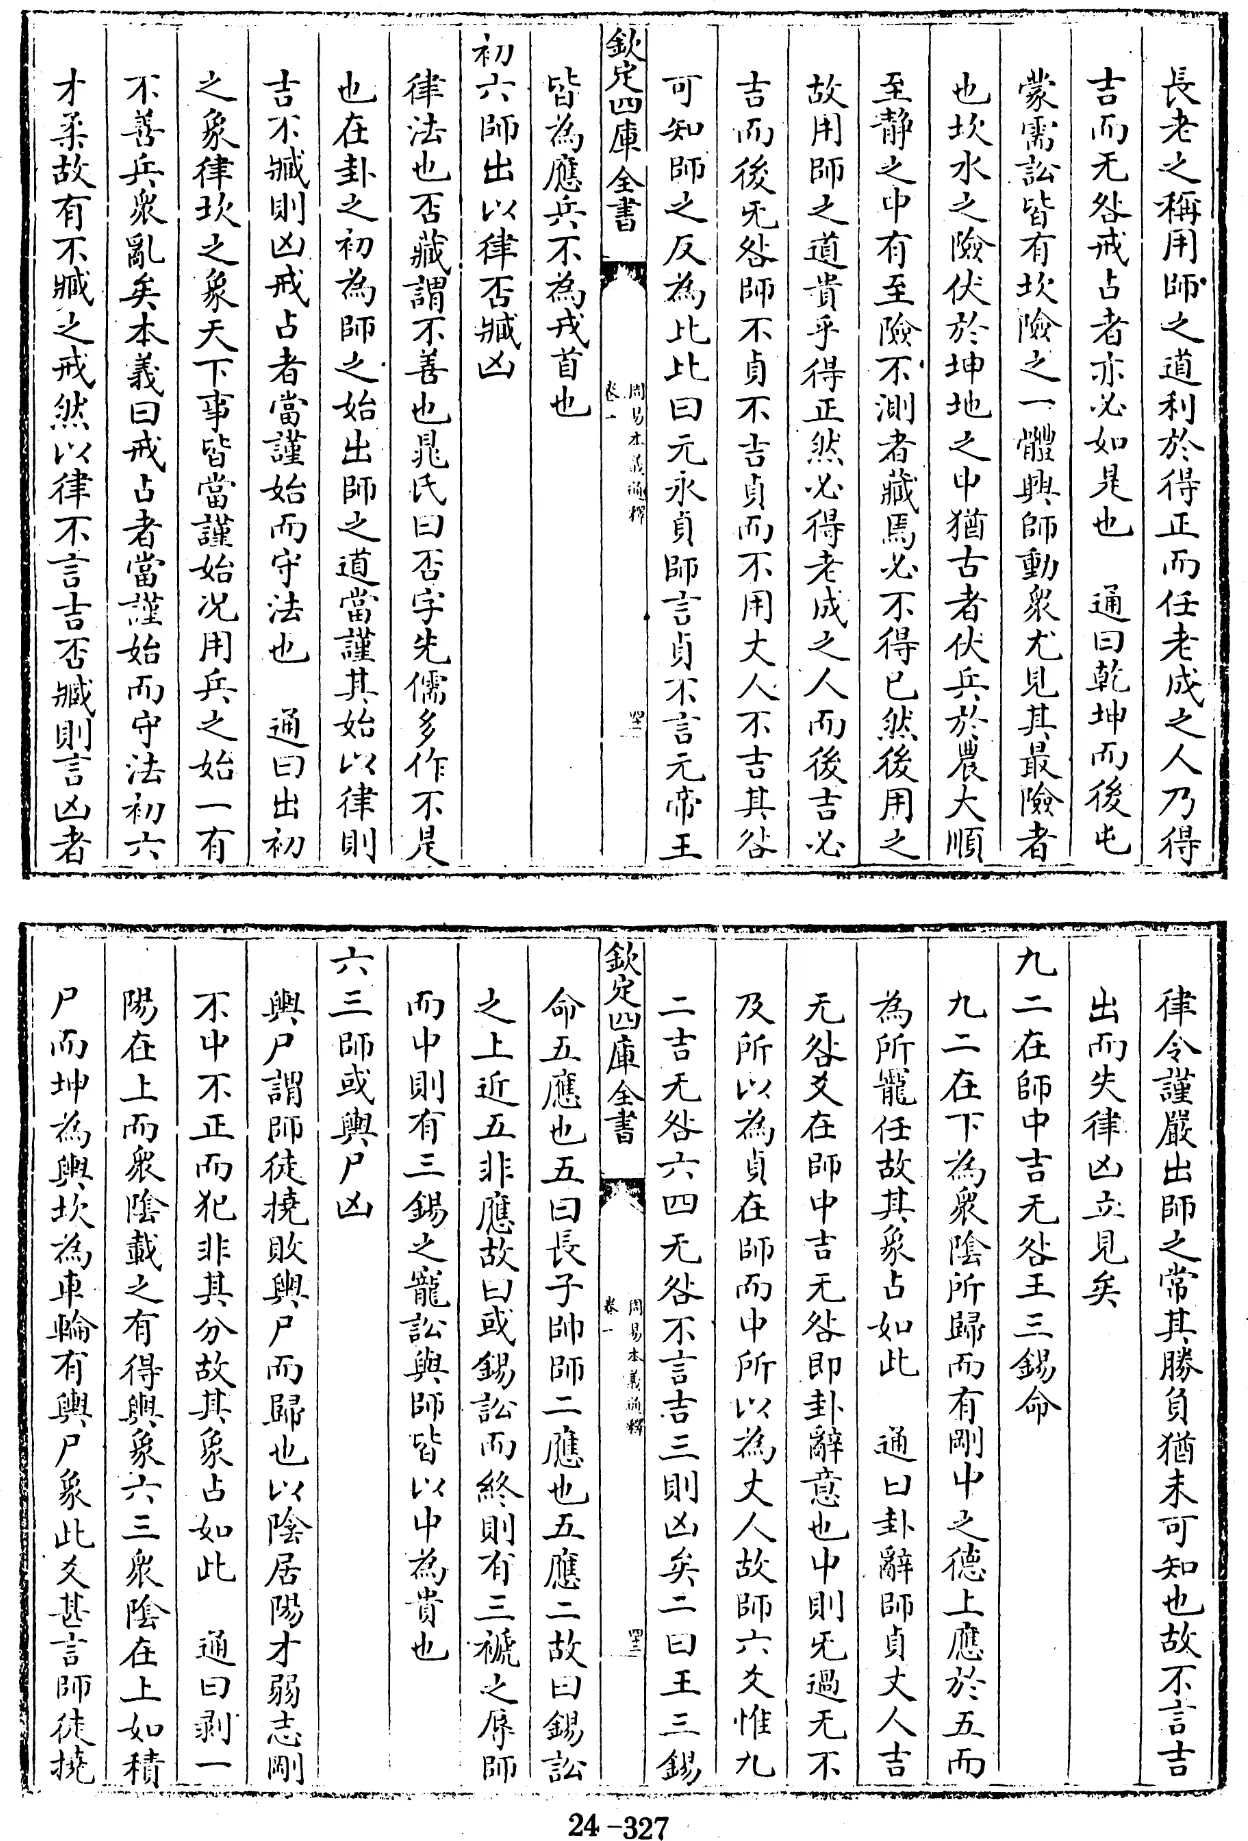 長老之稱用師之道利於得正而任老成之人乃得
吉而无咎戒占者亦必如是也　通曰乾坤而後屯
蒙需訟皆有坎險之一體興師動衆尤見其最險者
也坎水之險伏於坤地之中猶古者伏兵於農大順
至静之中有至險不測者藏焉必不得已然後用之
故用師之道貴乎得正然必得老成之人而後吉必
吉而後无咎師不貞不吉貞而不用丈人不吉其咎
可知師之反為比比曰元永貞師言貞不言元帝王
欽定四庫全書
周易本義通釋
卷一
四二
皆為應兵不為戎首也
初六師出以律否臧凶
律法也否藏謂不善也晁氏曰否字先儒多作不是
也在卦之初為師之始出師之道當謹其始以律則
吉不臧則凶戒占者當謹始而守法也　通曰出初
之象律坎之象天下事皆當謹始况用兵之始一有
不善兵衆亂矣本義曰戒占者當謹始而守法初六
才柔故有不臧之戒然以律不言吉否臧則言凶者
律令謹嚴出師之常其勝負猶未可知也故不言吉
出而失律凶立見矣
九二在師中吉无咎王三錫命
九二在下為衆陰所歸而有剛中之德上應於五而
為所寵任故其象占如此　通曰卦辭師貞丈人吉
无咎爻在師中吉无咎即卦辭意也中則无過无不
及所以為貞在師而中所以為丈人故師六爻惟九
二吉无咎六四无咎不言吉三則凶矣二曰王三錫
欽定四庫全書
周易本義通釋
卷一
四三
命五應也五曰長子帥師二應也五應二故曰錫訟
之上近五非應故曰或錫訟而終則有三褫之辱師
而中則有三錫之寵訟與師皆以中為貴也
六三師或輿尸凶
輿尸謂師徒撓敗輿尸而歸也以陰居陽才弱志剛
不中不正而犯非其分故其象占如此　通曰剥一
陽在上而衆陰載之有得輿象六三衆陰在上如積
尸而坤為輿坎為車輪有輿尸象此爻甚言師徒撓
24-327